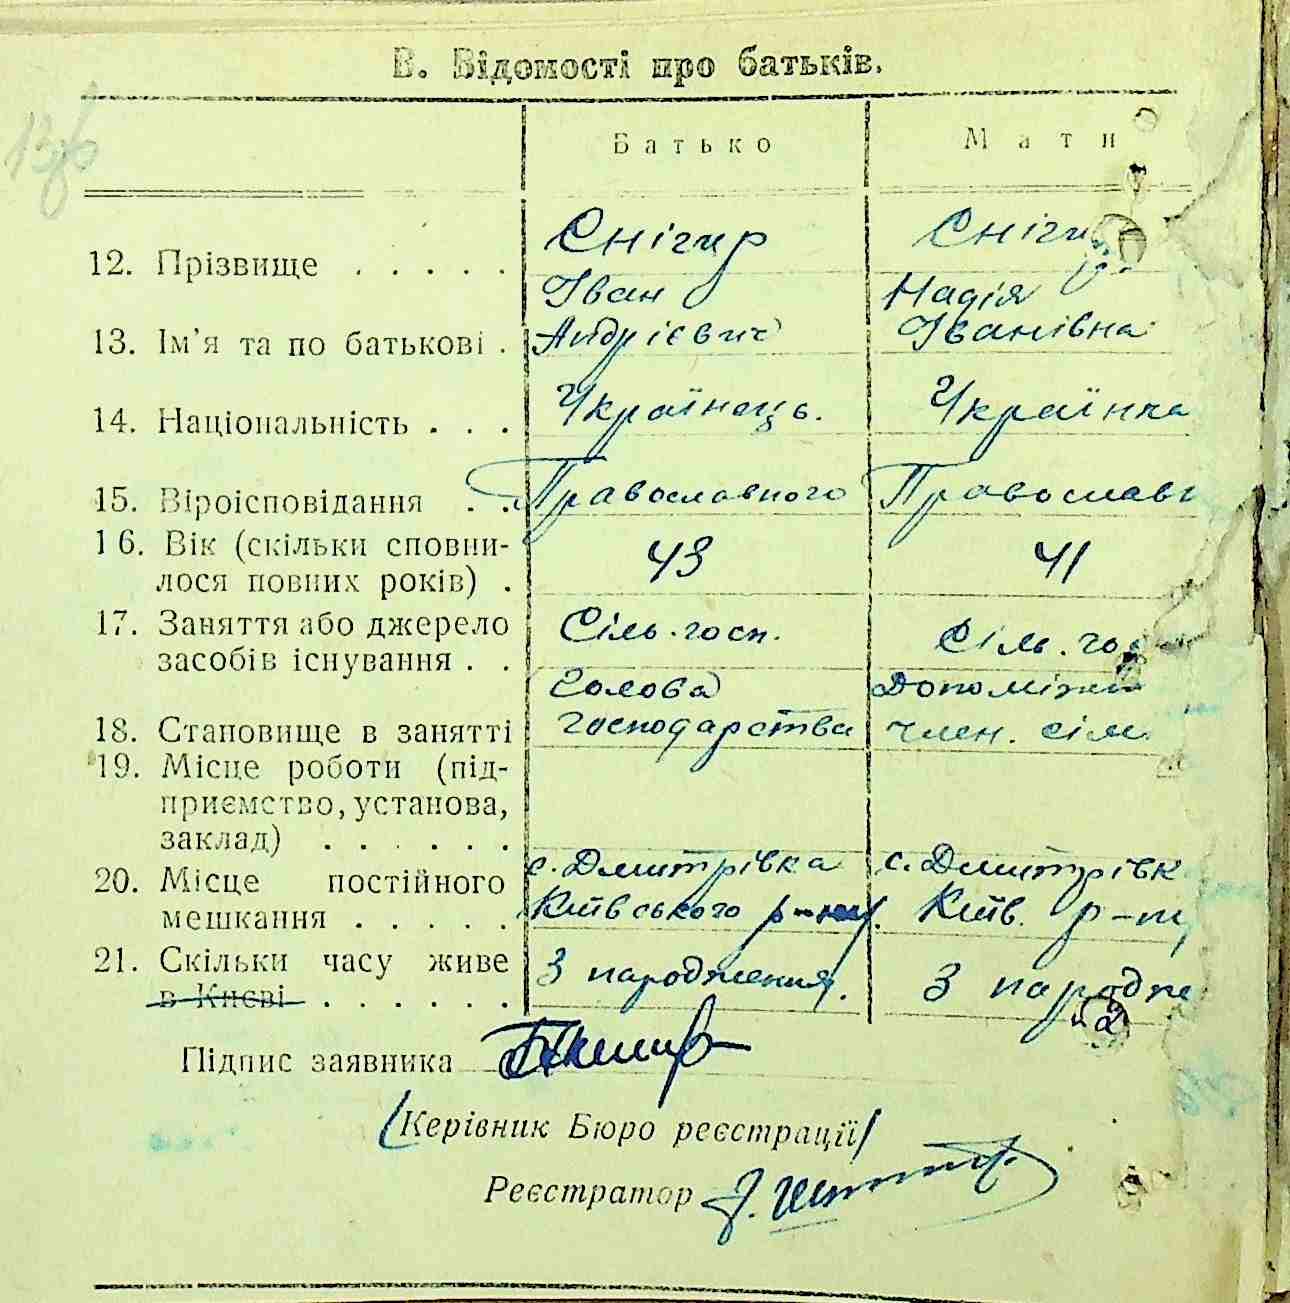 В. Відомості про батьків.
Батько Мати
12. Прізвище . . . . . Снігир Снігир
Іван Надія
13. Ім'я та по батькові . Андрієвич Іванівна
14. Національність . . . Українець. Українка
15. Віроісповідання . . Православного Православн
16. Вік (скільки сповни- 43 41
лося повних років) .
17. Заняття або джерело Сіль. госп. Сіль. го
засобів існування . .
Голова Допоміжн
18. Становище в занятті господарства член. сім
19. Місце роботи (під-
приємство, установа,
заклад) . . . . . .
20. Місце постійного с. Дмитрівка с. Дмитрівк
мешкання . . . . . Київського р-ну. Київ. р-ну
21. Скільки часу живе З народження. З народже
в Києві . . . . . .
Підпис заявника
(Керівник Бюро реєстрації)
Реєстратор